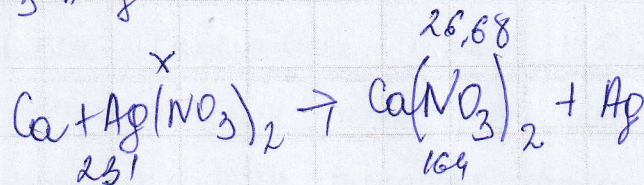 26,68
x
Ca + Ag(NO3)2 → Ca(NO3)2 + Ag
231 164